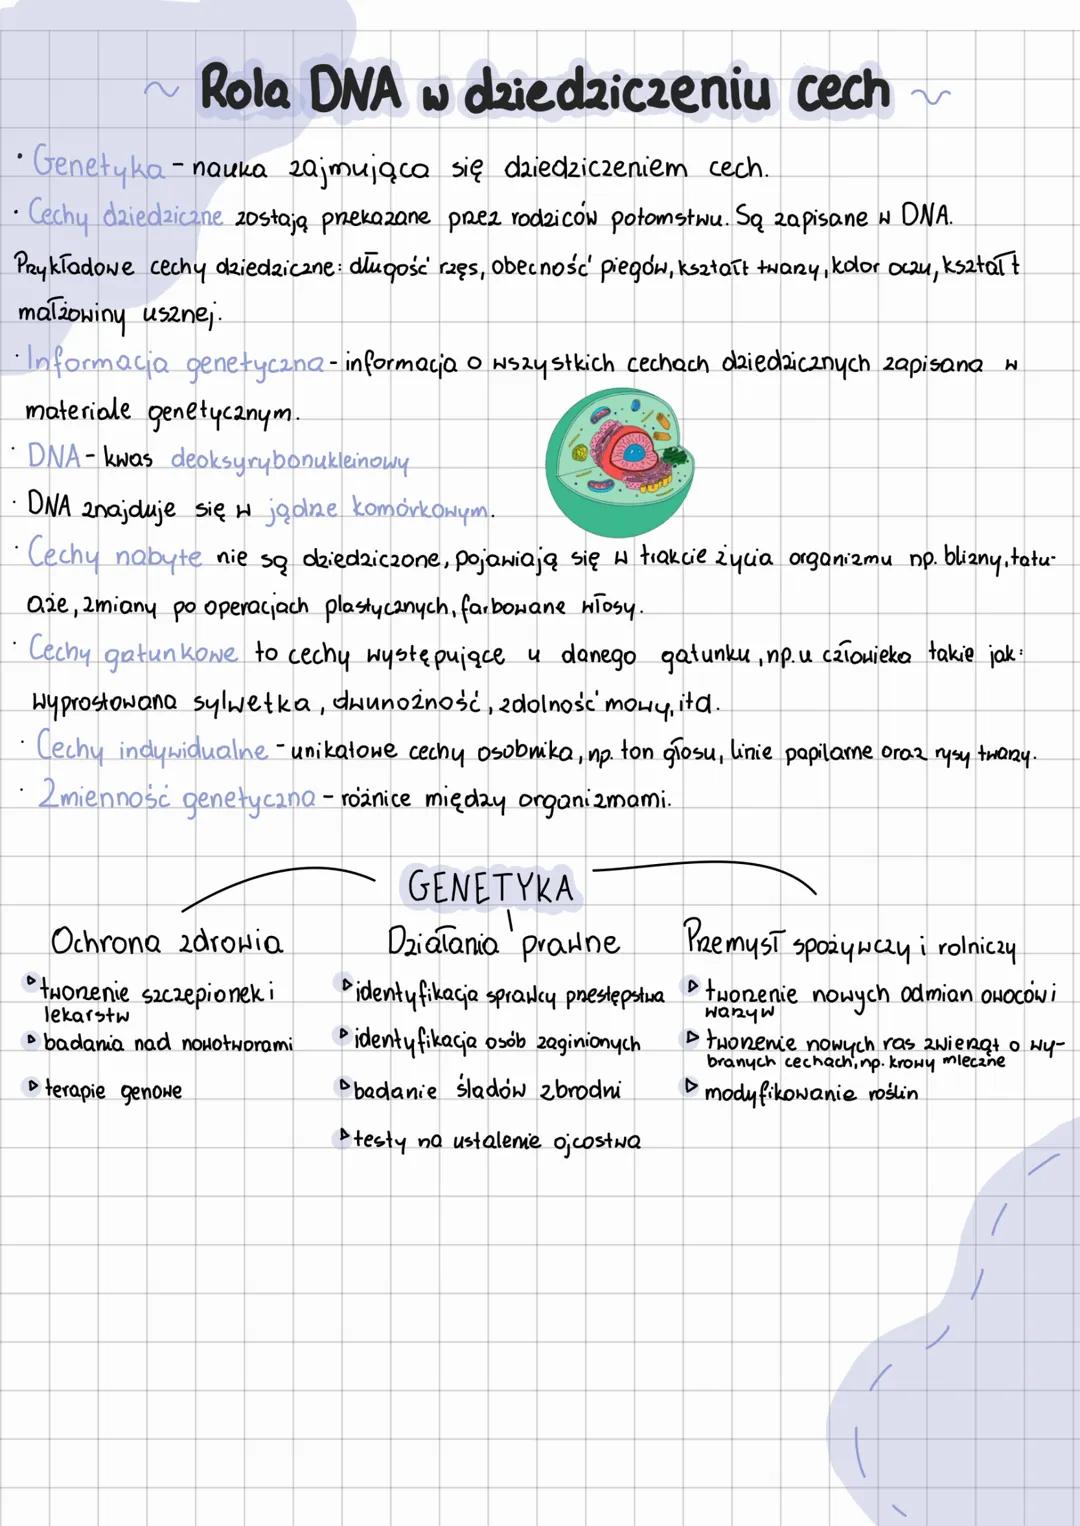 ~ Rola DNA w dziedziczeniu cech ~
· Genetyka - nauka zajmująca się dziedziczeniem cech.
· Cechy dziedziczne zostają przekazane przez rodziców potomstwu. Są zapisane w DNA.
Przykładowe cechy dziedziczne: długość rzęs, obecność piegów, kształt twarzy, kolor oczu, kształt
małżowiny usznej.
· Informacja genetyczna - informacja o wszystkich cechach dziedzicznych zapisana w
materiale genetycznym.
· DNA - kwas deoksyrybonukleinowy
· DNA znajduje się w jądrze komórkowym.
· Cechy nabyte nie są dziedziczone, pojawiają się w trakcie życia organizmu np. blizny, tatu-
aże, zmiany po operacjach plastycznych, farbowane włosy.
· Cechy gatunkowe to cechy występujące u danego gatunku, np. u człowieka takie jak:
wyprostowana sylwetka, dwunożność, zdolność mowy, itd.
· Cechy indywidualne - unikatowe cechy osobnika, np. ton głosu, linie papilarne oraz rysy twarzy.
· Zmienność genetyczna - różnice między organizmami.
GENETYKA
Ochrona zdrowia
▷ tworzenie szczepionek i
lekarstw
▷ badania nad nowotworami
▷ terapie genowe
Działania prawne
▷ identyfikacja sprawcy przestępstwa
▷ identyfikacja osób zaginionych
▷ badanie śladów zbrodni
▷ testy na ustalenie ojcostwa
Przemysł spożywczy i rolniczy
▷ tworzenie nowych odmian owoców i
warzyw
▷ tworzenie nowych ras zwierząt o wy-
branych cechach, np. krowy mleczne
▷ modyfikowanie roślin